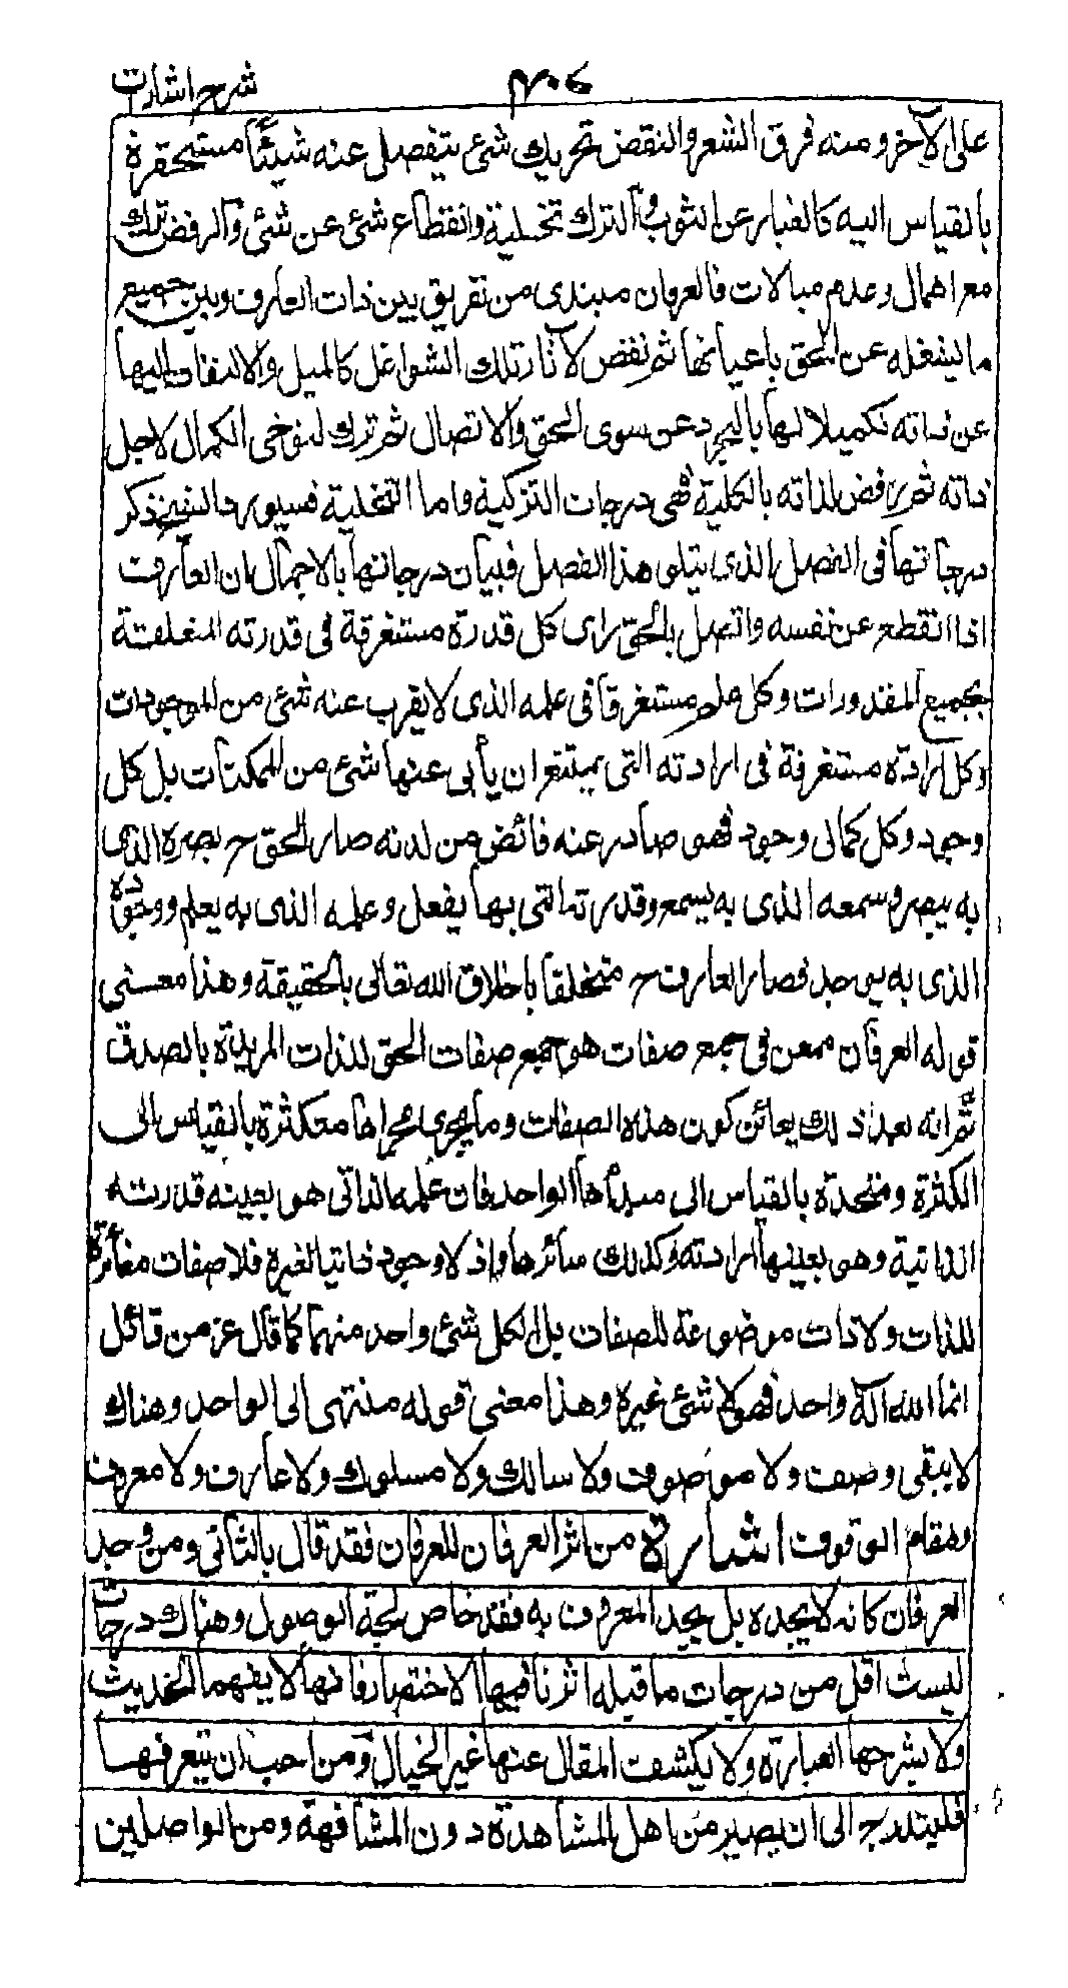 شرح اشارات
على الآخر ومنه فرق الشعر والنقض تحريك شئ ينفصل عنه شيئاً مستحقرة
بالقياس اليه كالغبار عن الثوب والترك تخلية وانقطاع شئ عن شئ والرفض ترك
مع اهمال وعدم مبالات فالعرفان مبتدى من تفريق بين ذات العارف وبين جميع
ما يشغله عن الحق باعيانها ثم نفض لآثار تلك الشواغل كالميل والالتفات اليها
عن ذاته تكميلا لها بالتجرد عن سوى الحق والاتصال ثم ترك لتوخى الكمال لاجل
ذاته ثم رفض لذاته بالكلية فهى درجات التزكية واما التخلية فسيورد الشيخ ذكر
درجاتها فى الفصل الذى يتلو هذا الفصل فبيان درجاتها بالاجمال ان العارف
اذا انقطع عن نفسه واتصل بالحق راى كل قدرة مستغرقة فى قدرته المتعلقة
بجميع المقدورات وكل علم مستغرقا فى علمه الذى لا يعزب عنه شئ من الموجودات
وكل ارادة مستغرقة فى ارادته التى يمتنع ان يأبى عنها شئ من الممكنات بل كل
وجود وكل كمال وجود فهو صادر عنه فائض من لدنه صار الحق ح بصره الذى
به يبصر وسمعه الذى به يسمع وقدرته التى بها يفعل وعلمه الذى به يعلم ووجوده
الذى به يوجد فصار العارف ح متخلقا باخلاق الله تعالى بالحقيقة وهذا معنى
قوله العرفان ممعن فى جمع صفات هو جميع صفات الحق للذات المريدة بالصدق
ثم انه بعد ذلك يعائن كون هذه الصفات وما يجرى مجراها متكثرة بالقياس الى
الكثرة ومتحدة بالقياس الى مبدأها الواحد فان علمه الذاتى هو بعينه قدرته
الذاتية وهى بعينها ارادته وكذلك سائرها واذ لا وجود ذاتيا لغيره فلا صفات مغائرة
للذات ولا ذات موضوعة للصفات بل الكل شئ واحد منهما كما قال عز من قائل
انما الله اله واحد فهو لا شئ غيره وهذا معنى قوله منتهى الى الواحد وهناك
لا يبقى وصف ولا موصوف ولا سالك ولا مسلوك ولا عارف ولا معروف
وهو مقام الوقوف اشارة من اثر العرفان للعرفان فقد قال بالثانى ومن وجد
العرفان كانه لا يجده بل يجد المعروف به فقد خاض لجة الوصول وهناك درجات
ليست اقل من درجات ما قبله اثرنا فيها الاختصار فانها لا يفهما الحديث
ولا يشرحها العبارة ولا يكشف المقال عنها غير الخيال ومن احب ان يتعرفها
فليتدرج الى ان يصير من اهل المشاهدة دون المشافهة ومن الواصلين